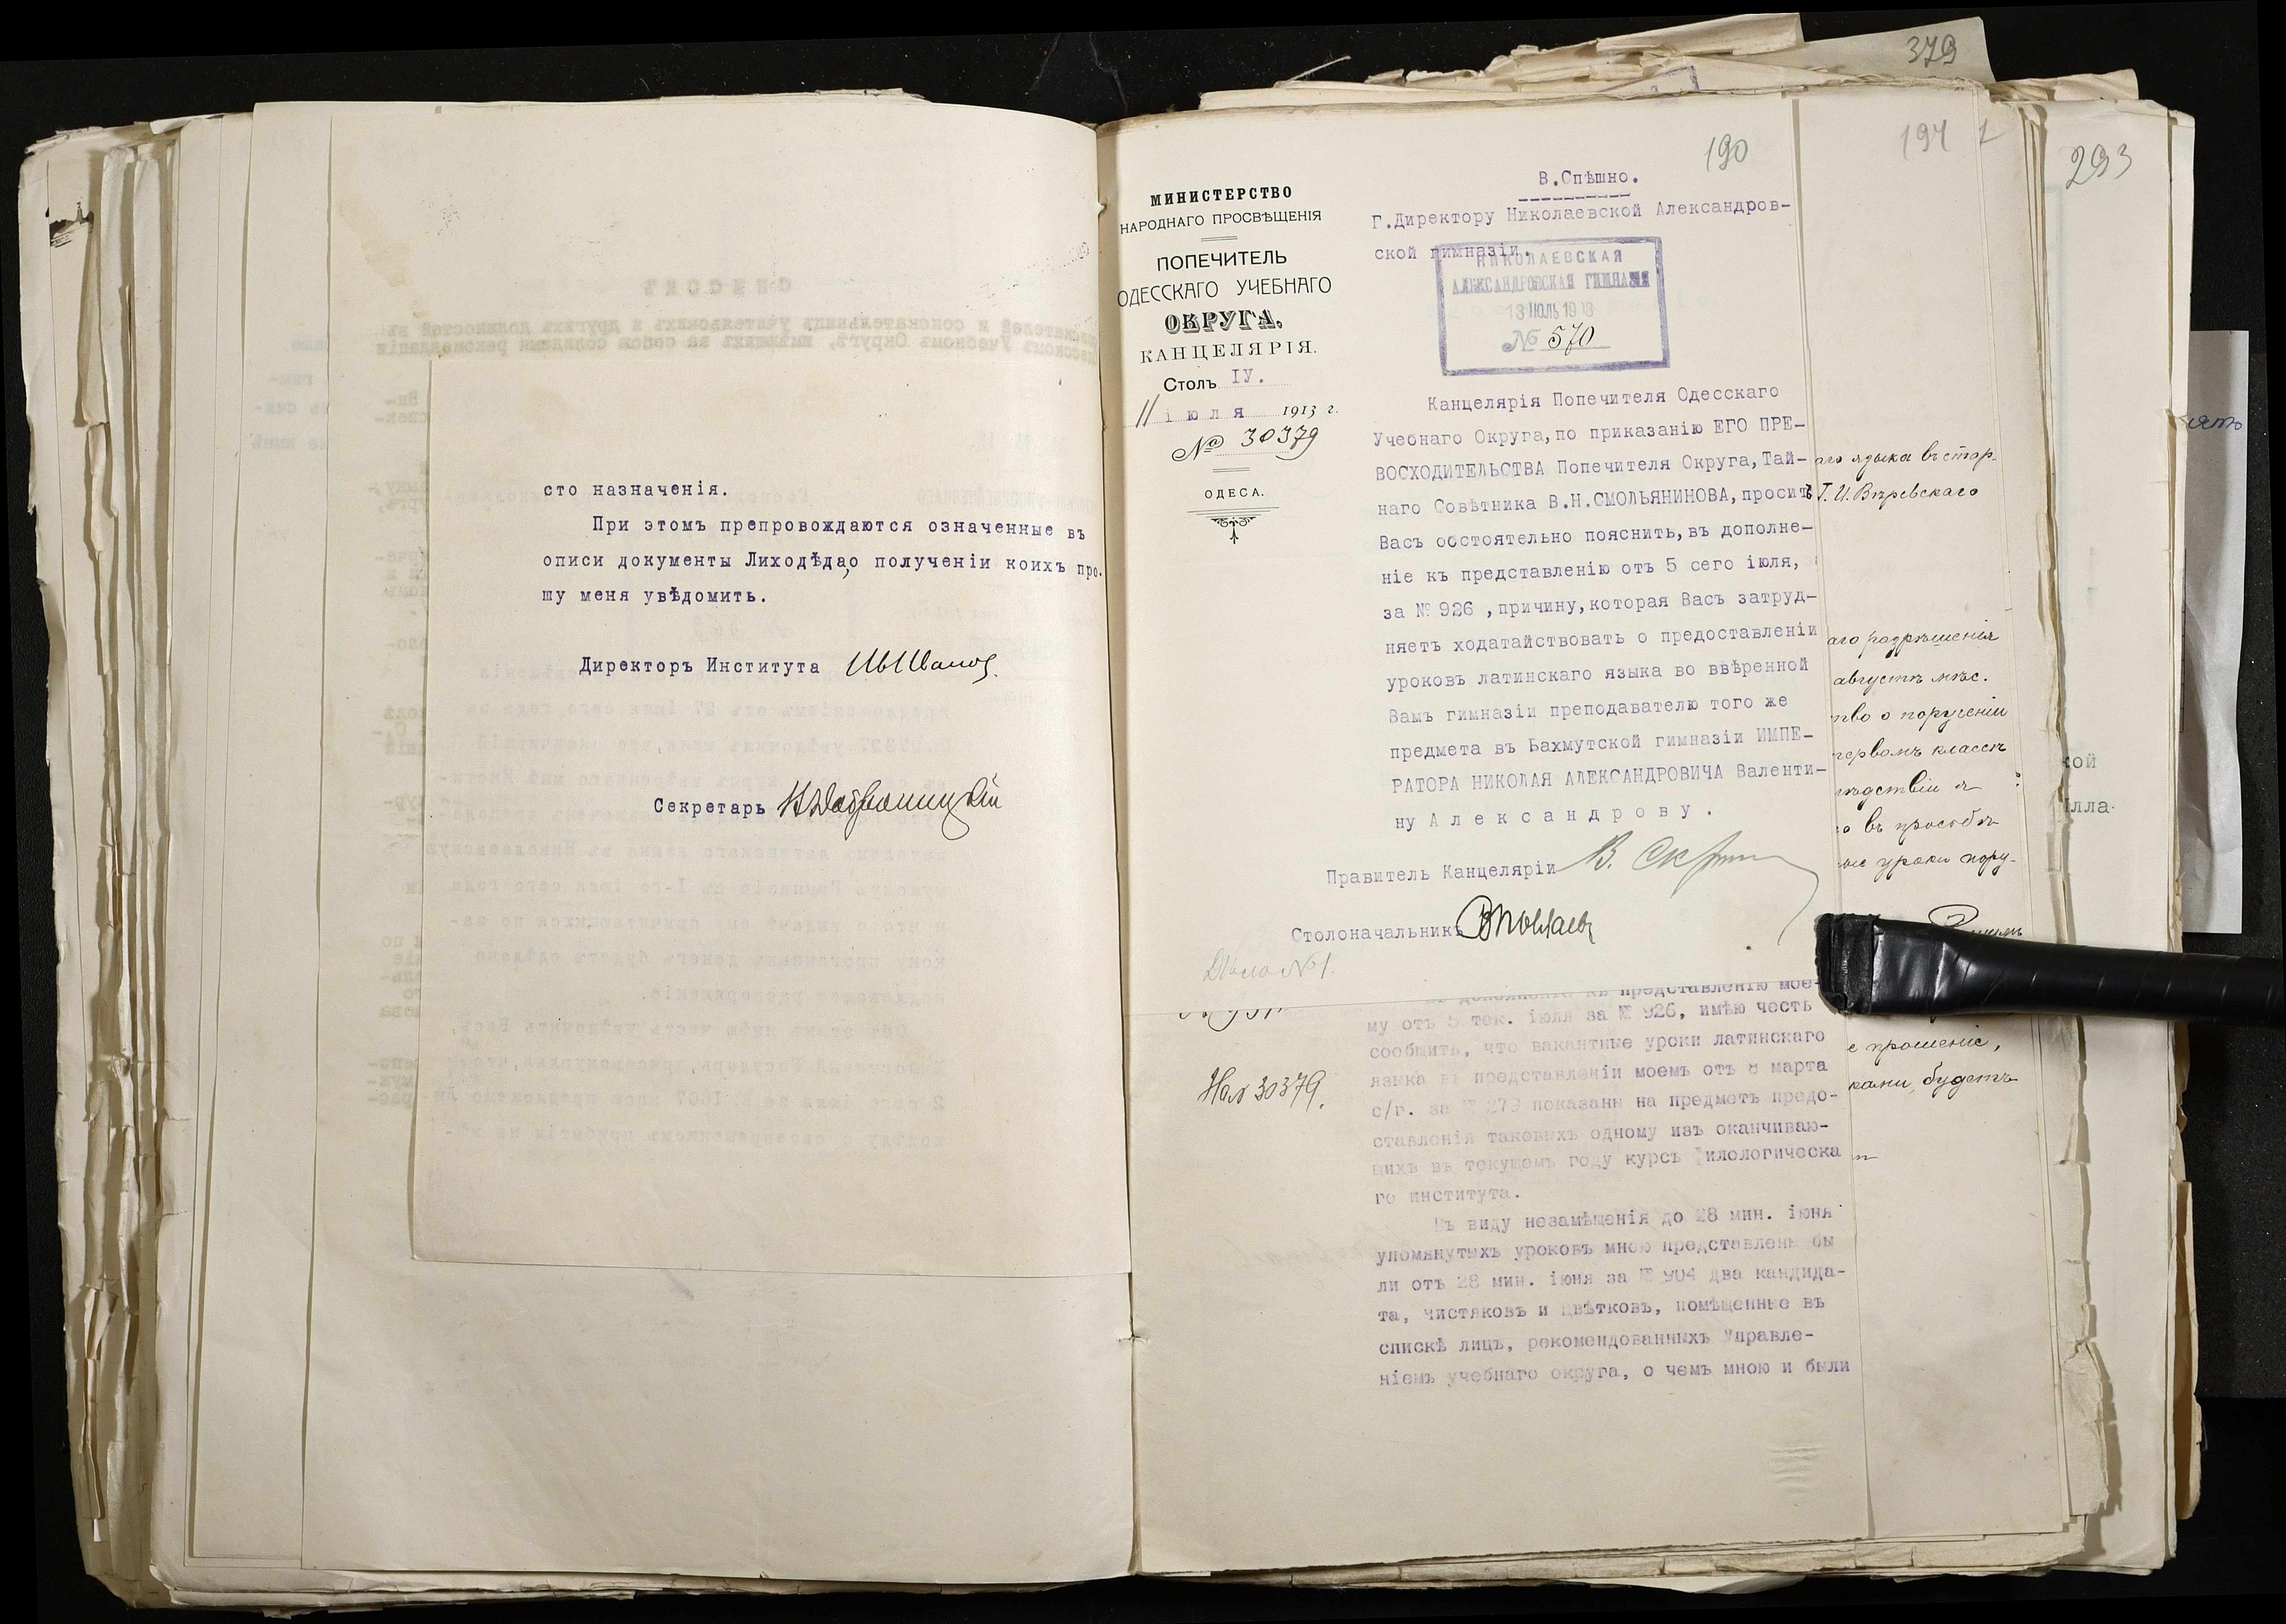 сто назначенія.
При этомъ препровождаются означенные въ
описи документы Лиходѣда, о полученіи коихъ про-
шу меня увѣдомить.
Директоръ Института
Секретарь
379
190
194
293
МИНИСТЕРСТВО
НАРОДНАГО ПРОСВѢЩЕНІЯ
ПОПЕЧИТЕЛЬ
ОДЕССКАГО УЧЕБНАГО
ОКРУГА.
КАНЦЕЛЯРІЯ.
Столъ ІУ.
11 іюля 1913 г.
№ 30379
ОДЕСА.
В.Спѣшно.
Г.Директору Николаевской Александров-
ской гимназіи.
НИКОЛАЕВСКАЯ
АЛЕКСАНДРОВСКАЯ ГИМНАЗІЯ
13 ІЮЛЬ 1913
№ 570
Канцелярія Попечителя Одесскаго
Учебнаго Округа, по приказанію ЕГО ПРЕ-
ВОСХОДИТЕЛЬСТВА Попечителя Округа, Тай-
наго Совѣтника В.Н.СМОЛЬЯНИНОВА, проситъ
Васъ обстоятельно пояснить, въ дополне-
ніе къ представленію отъ 5 сего іюля,
за № 926 , причину, которая Васъ затруд-
няетъ ходатайствовать о предоставленіи
уроковъ латинскаго языка во ввѣренной
Вамъ гимназіи преподавателю того же
предмета въ Бахмутской гимназіи ИМПЕ-
РАТОРА НИКОЛАЯ АЛЕКСАНДРОВИЧА Валенти-
ну Александрову.
Правитель Канцеляріи
Столоначальникъ
Дѣло №1.
На № 30379.
представленію мое-
му отъ 5 тек. іюля за № 926, имѣю честь
сообщить, что вакантные уроки латинскаго
языка въ представленіи моемъ отъ 8 марта
с/г. за № 279 показаны на предметъ предо-
ставленія таковыхъ одному изъ оканчиваю-
щихъ въ текущемъ году курсъ филологическа
го института.
Въ виду незамѣщенія до 28 мин. іюня
упомянутыхъ уроковъ мною представлены бы
ли отъ 28 мин. іюня за № 904 два кандида-
та, Чистяковъ и Цвѣтковъ, помѣщенные въ
спискѣ лицъ, рекомендованныхъ Управле-
ніемъ учебнаго округа, о чемъ мною и были
языка въ стар-
августѣ мѣс.
о порученіи
первомъ классѣ
въ просьбѣ
уроки пору-
прошеніе,
будетъ